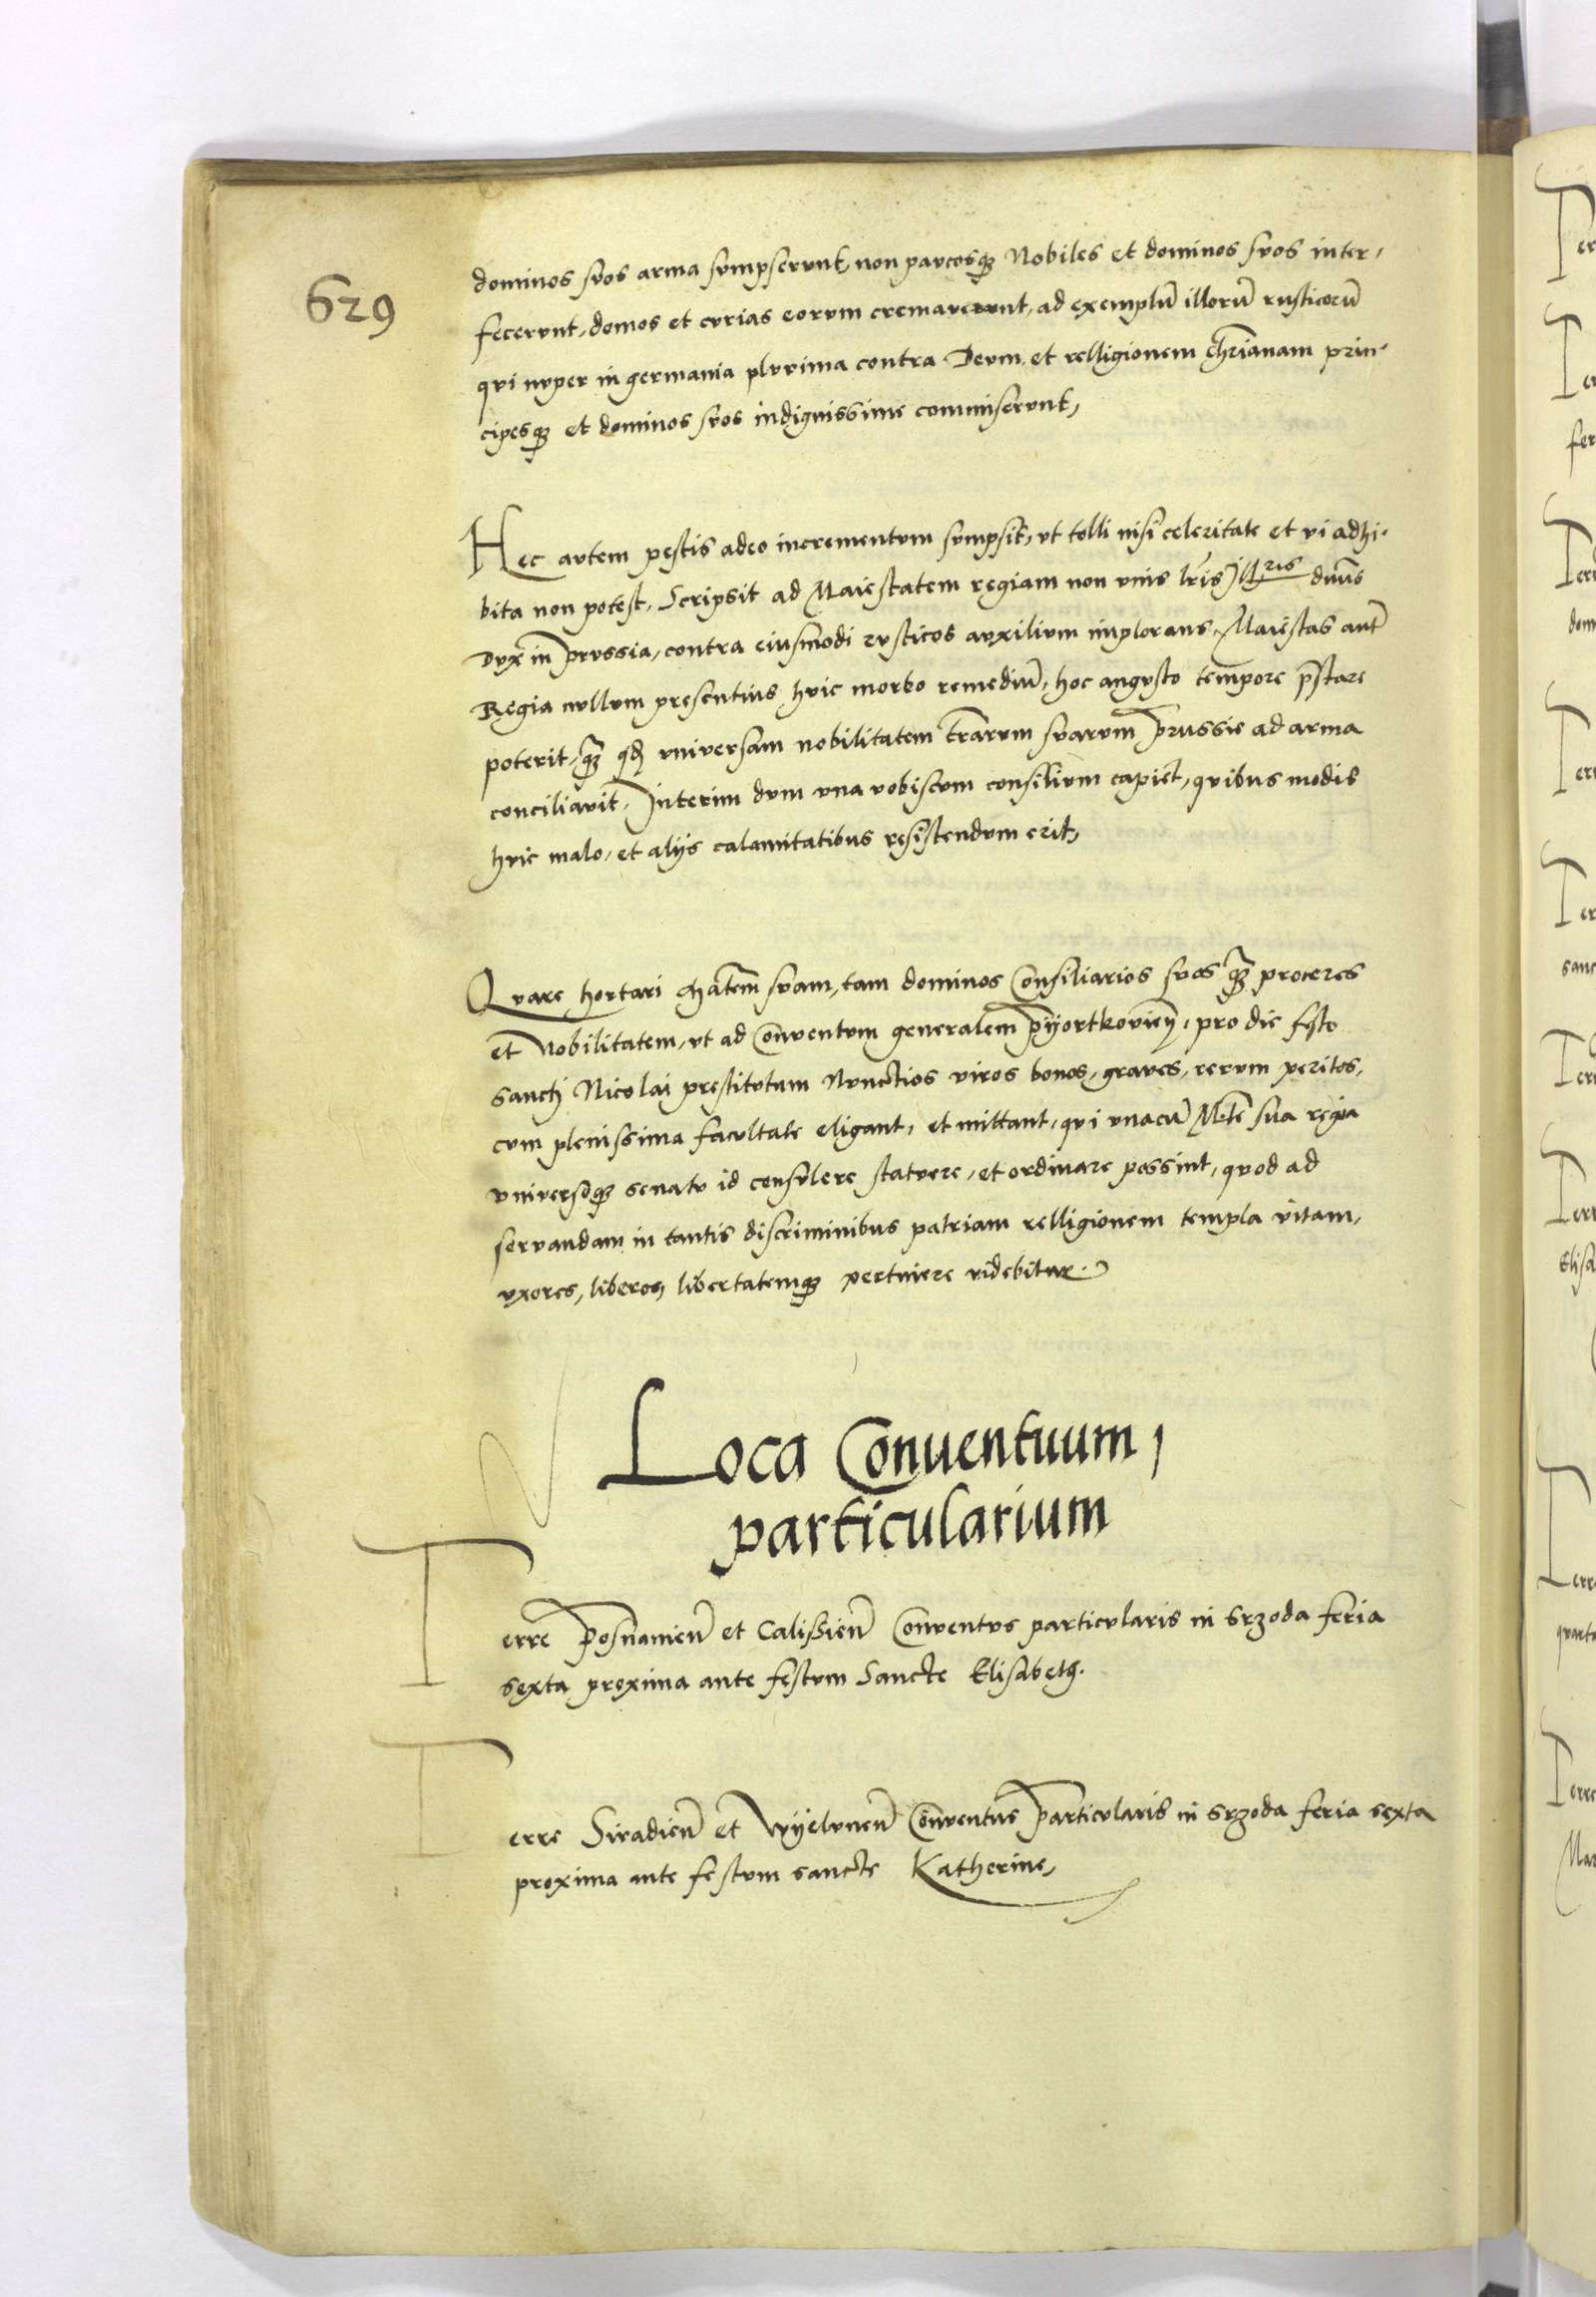 629
dominos suos arma sumpserunt, non paucosq̃ Nobiles et dominos suos inter,
fecerunt, domos et curias eorum cremaverunt, ad exemplũ illorũ rusticorũ
qui nuper in germania plurima contra Deum et relligionem chr̃ianam prin,
cipesq̃ et dominos suos indignissime commiserunt,
Hec autem pestis adeo incrementum sumpsit, ut tolli nisi celeritate et vi adhi,
bita non potest, Scripsit ad Maiestatem regiam non unis lr̃is Illris dnũs
Dux in prussia, contra eiusmodi rusticos auxilium implorans, Maiestas autẽ
Regia nullum presentius huic morbo remediũ, hoc angusto tempore p̃stare
poterit, q̃ qđ universam nobilitatem tr̃arum suarum prussie ad arma
conciliavit, Interim dum una vobiscum consilium capiet, quibus modis
huic malo, et alijs calamitatibus resistendum erit,
Quare hortari M̃atem suam, tam dominos Consiliarios suos q̃ proceres
et Nobilitatem, ut ad Conventum generalem Pyotrkovień, pro die festo
sancti Nicolai prestitutum Nunctios viros bonos, graves, rerum peritos,
cum plenissima facultate eligant, et mittant, qui unacũ M̃te sua regia
universoq̃ senatu id consulere statuere, et ordinare possint, quod ad
servandam in tantis discriminibus patriam relligionem templa vitam,
uxores, liberos, libertatemq̃ pertinere videbitur.
Loca Conventuum,
particularium
Terre Posnanień et Calissień Conventus particularis in Srzoda feria
sexta proxima ante festum Sancte Elisabeth.
Terre Siradień et Wyeluneń Conventus particularis in Srzoda feria sexta
proxima ante festum sancte Katherine,